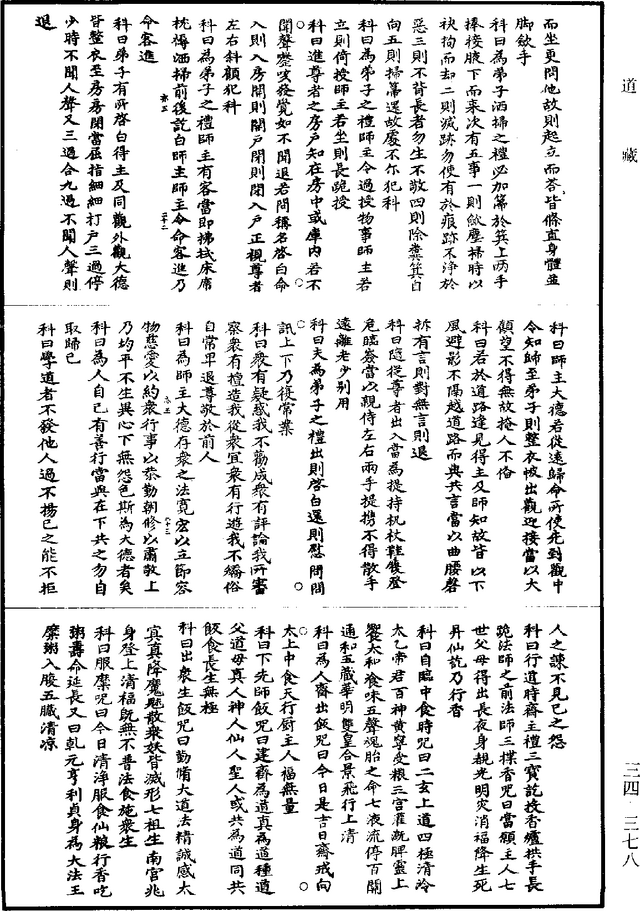 道藏
而坐更問他故則起立而荅皆條直身體並
脚斂手
科曰為弟子洒掃之禮必加箒於箕上兩手
捧接腋下而来次有五事一則斂塵掃時以
袂拘而却二則滅跡勿使有於痕跡不淨於
惡三則不背長者勿生不敬四則除糞箕自
向五則掃箒還故處不尒犯科
科曰為弟子之禮師主令過授物事師主若
立則倚授師主若坐則長跪授
科曰進尊者之房戶知在房中或庫内若不
聞聲謦咳發覺如不聞退若問稱名啓白命
入則入房開則開戶閉則閉入戶正視尊者
左右斜顧犯科
科曰為弟子之禮師主有客當即拂拭床席
枕褥洒掃前後訖白師主師主令命客進乃
命客進
科曰弟子有所啓白得主及同觀外觀大德
皆整衣至房房閉當屈指細細打戶三過停
少時不聞人聲又三過合九過不聞人聲則
退
科曰師主大德若從遠歸命所使先到觀中
令知師至弟子則整衣帔出觀迎接當以大
顧望不得無故掩人不俻
科曰若於道路逢見得主及師知故皆以下
風避影不隔越道路而與共言當以曲腰磬
折有言則對無言則退
科曰隨從尊者出入當為提持机杖鞋履登
危臨嶮當以親侍左右兩手提携不得散手
遠離老少别用
科曰夫為弟子之禮出則啓白還則慰問問
訊上下乃復常業
科曰衆有疑惑我不勸成衆有評論我所審
察衆有擅造我從衆宜衆有行遊我不纐俗
自常卑退尊敬於前人
科曰為師主大德存衆之法寬宏以立節容
物慈愛以約衆行事以恭勤朝修以肅敬上
乃均平不生異心下無怨色斯為大德者矣
科曰為人自已有善行當與在下共之勿自
取歸已
科曰學道者不發他人過不揚已之能不拒
人之諫不見已之怨
科曰行道時齋主禮三寳訖授香爐拱手長
跪法師之前法師三㨾香咒曰當願主人七
世父母得出長夜身覩光明灾消福降生死
昇仙訖乃行香
科曰自臨中食時咒曰二玄上道四極清泠
太乙帝君百神黄寧受粮三宫灌溉脾靈上
饗太和飡味五聲魂胎之命七液流停百關
通和五藏華明雙皇合景飛行上清
科曰為人齋出飯咒曰今日是吉日齋戒向
太上中食天行厨主人福無量
科曰下先師飯咒曰建齋為道真為道種道
父道母真人神人仙人聖人或共為道同共
飯食長生無極
科曰出衆生飯咒曰勤脩大道法精誠感太
寘真降魔魃散衆妖皆滅形七祖生南宫兆
身登上清福既無不普法食施衆生
科曰服糜咒曰今日清淨服食仙粮行香吃
粥壽命延長又曰乹元亨利貞身為大法王
糜粥入腹五臓清凉
三四·三七八